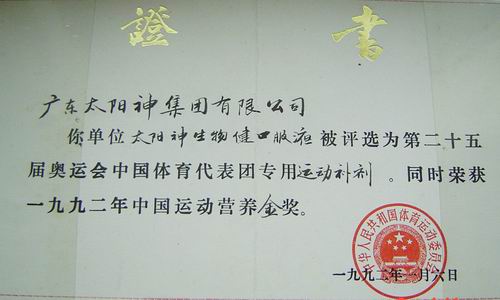 證書
广东太阳神集团有限公司
你单位太阳神生物健口服液被评选为第二十五
届奥运会中国体育代表团专用运动补剂。同时荣获
一九九二年中国运动营养金奖。
中华人民共和国体育运动委员会
一九九二年一月六日